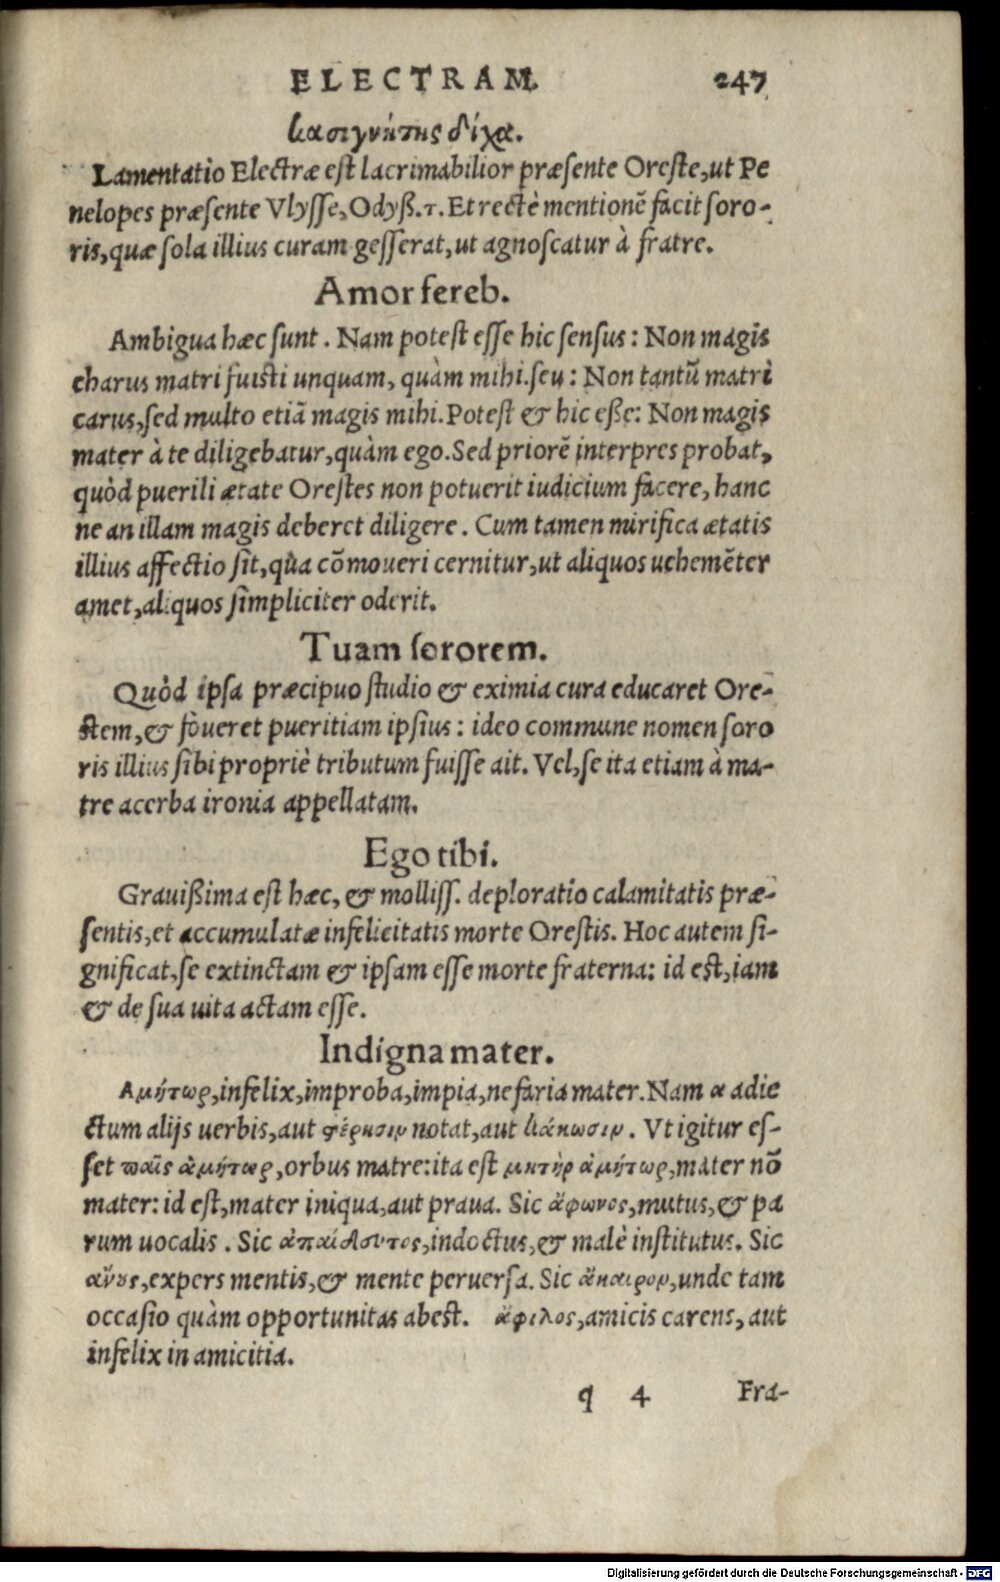 ELECTRAM. 247
κασιγνήτης δίχα.
Lamentatio Electræ est lacrimabilior præsente Oreste, ut Pe
nelopes præsente Vlysse, Odyß. τ. Et rectè mentionē facit soro-
ris, quæ sola illius curam gesserat, ut agnoscatur à fratre.
Amor fereb.
Ambigua hæc sunt. Nam potest esse hic sensus: Non magis
charus matri fuisti unquam, quàm mihi. seu: Non tantū matri
carus, sed multo etiā magis mihi. Potest & hic eße: Non magis
mater à te diligebatur, quàm ego. Sed priorē interpres probat,
quòd puerili ætate Orestes non potuerit iudicium facere, hanc
ne an illam magis deberet diligere. Cum tamen mirifica ætatis
illius affectio sit, qua cōmoueri cernitur, ut aliquos uehemēter
amet, aliquos simpliciter oderit.
Tuam sororem.
Quòd ipsa præcipuo studio & eximia cura educaret Ore-
stem, & foueret pueritiam ipsius: ideo commune nomen soro
ris illius sibi propriè tributum fuisse ait. Vel, se ita etiam à ma-
tre acerba ironia appellatam.
Ego tibi.
Grauißima est hæc, & molliss. deploratio calamitatis præ-
sentis, et accumulatæ infelicitatis morte Orestis. Hoc autem si-
gnificat, se extinctam & ipsam esse morte fraterna: id est, iam
& de sua uita actam esse.
Indigna mater.
Αμήτωρ, infelix, improba, impia, nefaria mater. Nam α adie
ctum alijs uerbis, aut στέρησιν notat, aut κάκωσιν. Vt igitur es-
set παῖς ἀμήτωρ, orbus matre: ita est μητὴρ ἀμήτωρ, mater nō
mater: id est, mater iniqua, aut praua. Sic ἄφωνος, mutus, & pa
rum uocalis. Sic ἀπαίδευτος, indoctus, & malè institutus. Sic
ἄνους, expers mentis, & mente peruersa. Sic ἄκαιρον, unde tam
occasio quàm opportunitas abest. ἄφιλος, amicis carens, aut
infelix in amicitia.
q 4 Fra-
Digitalisierung gefördert durch die Deutsche Forschungsgemeinschaft - DFG